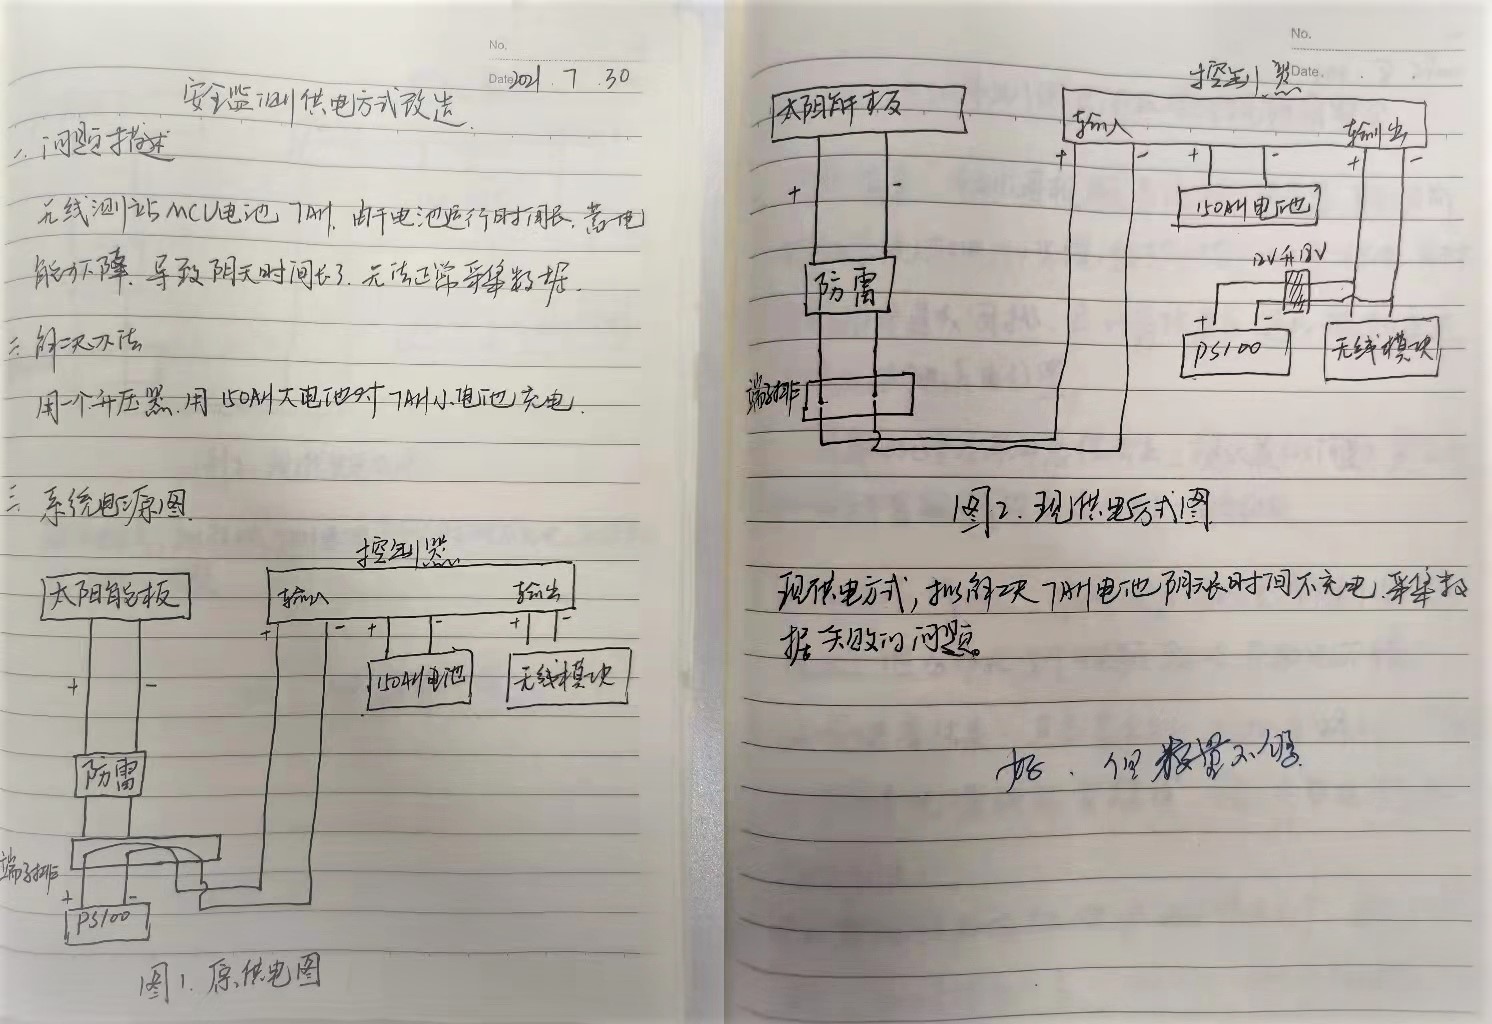 No.
Date 2021.7.30
安全监测供电方式改造
一、问题描述
无线测站MCU电池7AH,由于电池运行时间长,蓄电
能力下降,导致阴天时间长了,无法正常采集数据.
二、解决办法
用一个升压器,用150AH大电池对7AH小电池充电.
三、系统电源图
控制器
太阳能板
输入
输出
+ - + - + -
150AH电池
无线模块
+ -
防雷
端子排
+ -
PS100
图1.原供电图
No.
Date.
控制器
太阳能板
输入
输出
+ - + - + -
150AH电池
+ -
12V升18V
防雷
+ -
PS100
无线模块
端子排
图2.现供电方式图
现供电方式,拟解决7AH电池阴天长时间不充电,采集数
据失败的问题。
好.但数量不够.